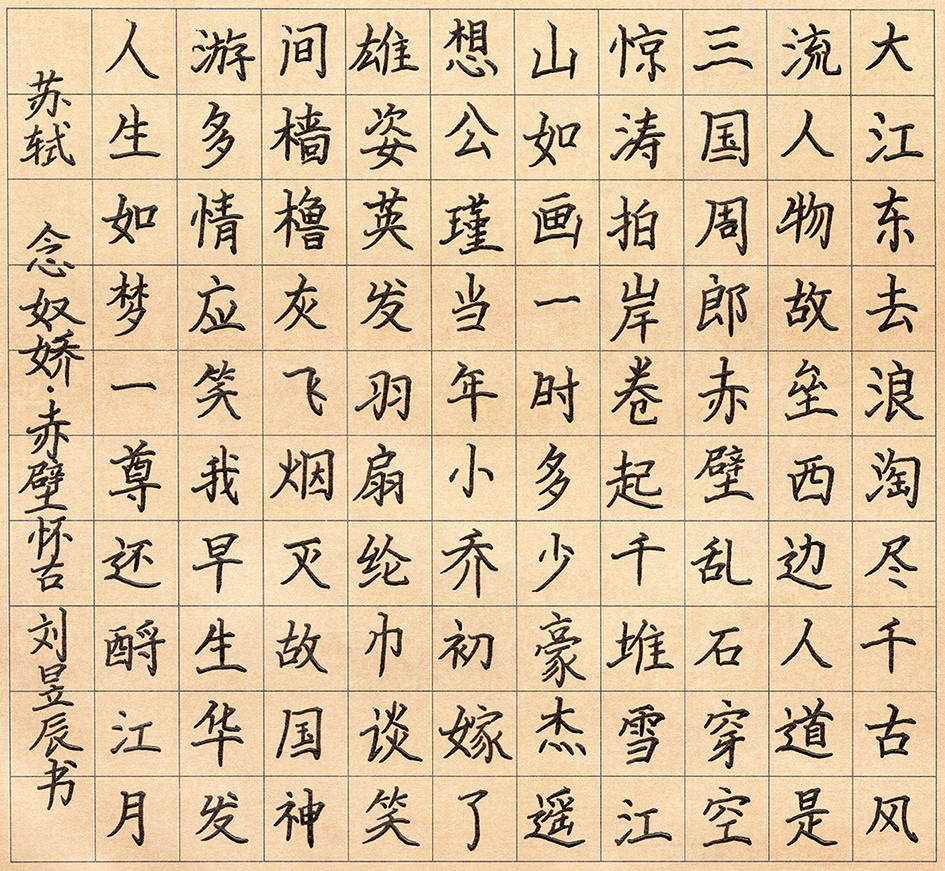 大江东去浪淘尽千古风
流人物故垒西边人道是
三国周郎赤壁乱石穿空
惊涛拍岸卷起千堆雪江
山如画一时多少豪杰遥
想公瑾当年小乔初嫁了
雄姿英发羽扇纶巾谈笑
间樯橹灰飞烟灭故国神
游多情应笑我早生华发
人生如梦一尊还酹江月
苏轼 念奴娇·赤壁怀古 刘昱辰书